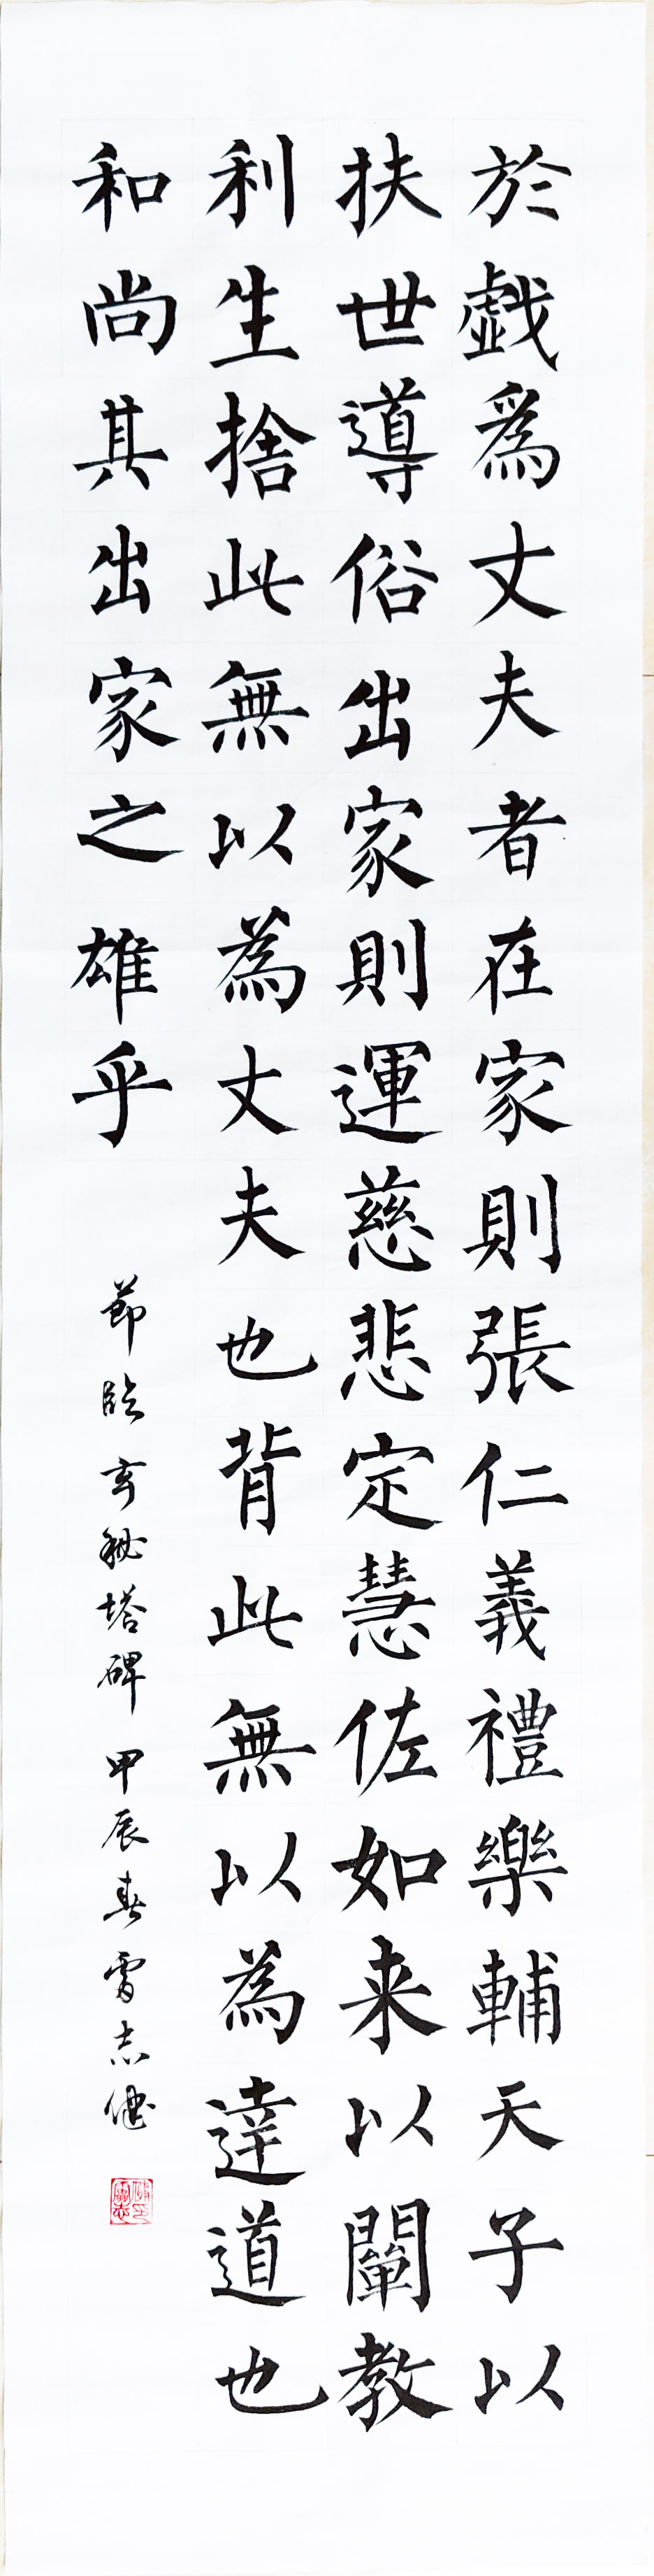 於戲爲丈夫者在家則張仁義禮樂輔天子以
扶世導俗出家則運慈悲定慧佐如来以闡教
利生捨此無以為丈夫也背此無以為達道也
和尚其出家之雄乎
節臨玄秘塔碑甲辰春雷志健